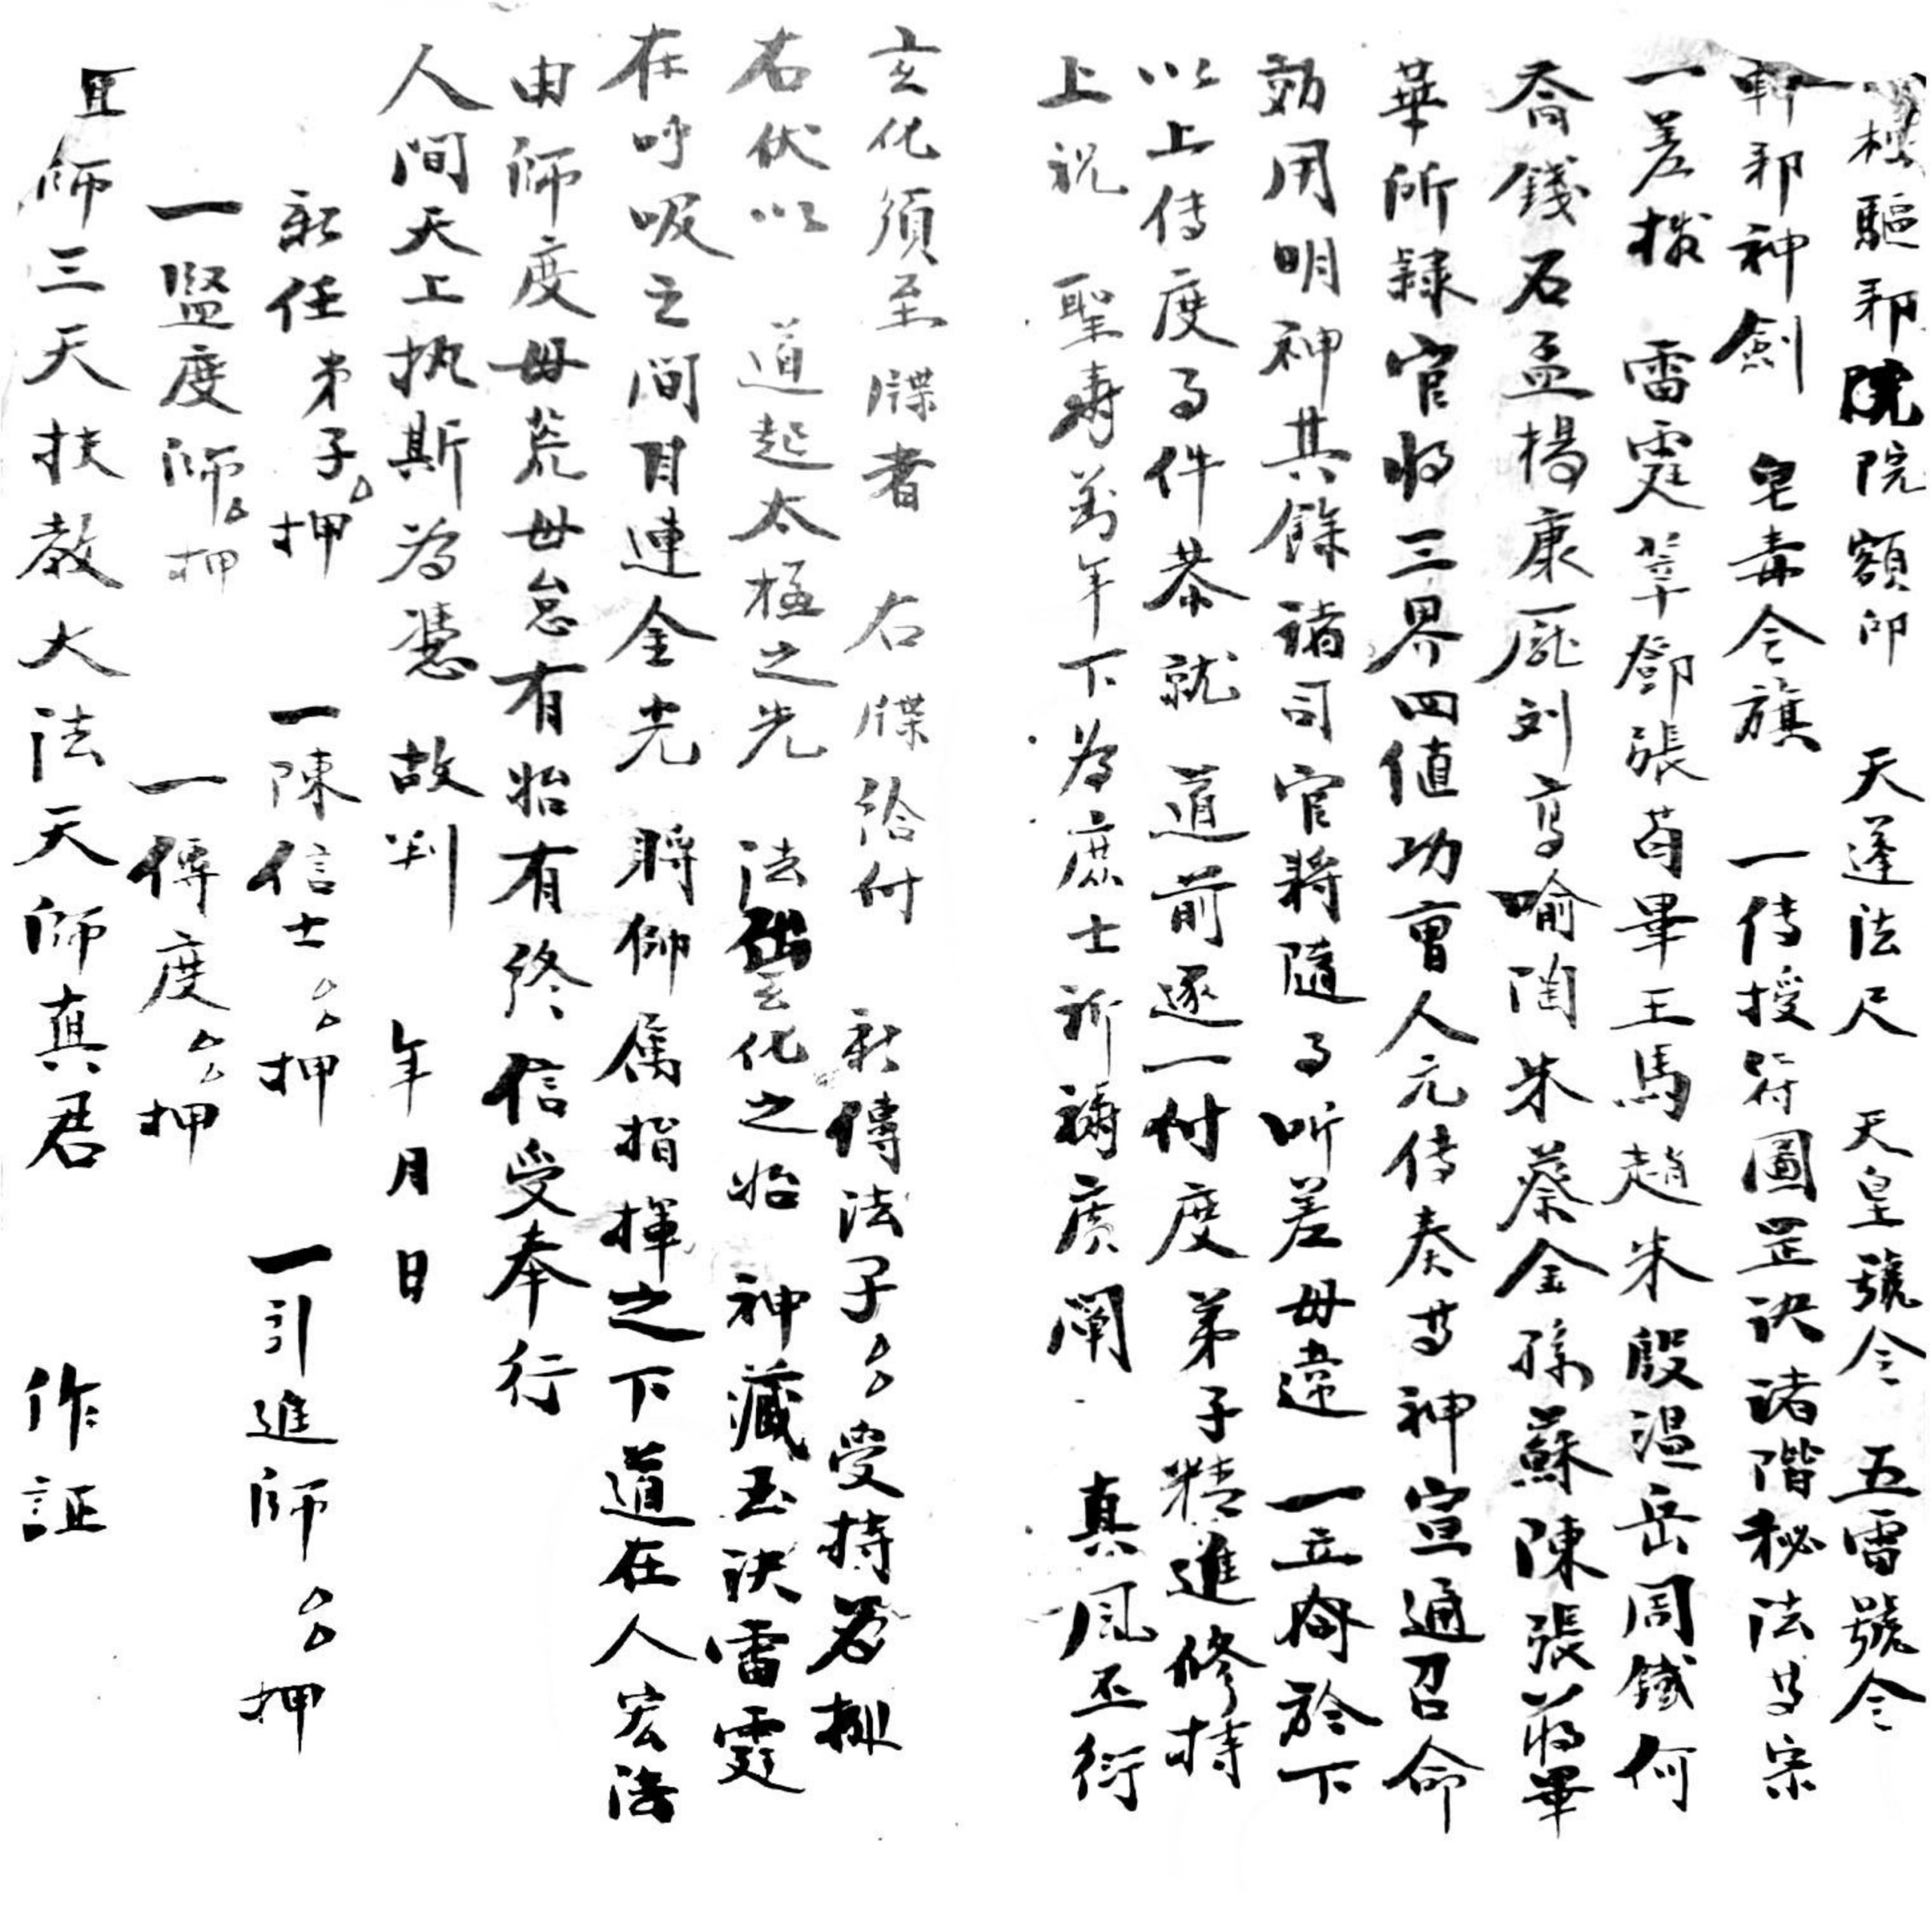 極驅邪院院額印 天蓬法尺 天皇號令 五雷號令
斬邪神劍 皂毒令旗 一传授符圖罡诀诸階秘法等宗
一差撥 雷霆辛鄧張苟畢王馬趙朱殷温岳周鐵何
喬錢石孟楊康厖刘高喻陶朱蔡金孫蘇陳張蔣畢
華所隸官将三界四值功曹人元传奏等神宣通召命
効用明神其餘诸司官將隨事听差毋違 一立 於下
以上传度事件恭就 道前逐一付度弟子精進修持
上祝 聖壽萬年下為庶士祈禱广闡 真風丕衍
玄化須至牒者 右牒给付 新傳法子厶厶受持為
右伏以 道起太極之光 法 玄化之始 神藏玉诀雷霆
在呼吸之间目連金光 將仰属指揮之下道在人宏法
由师度毋荒毋怠有始有终信受奉行
人间天上执斯為憑 故判 年月日
新任弟子厶押 一陳信士厶厶押 一引進师厶厶押
一監度师厶押 一傳度厶厶押
且师三天扶教大法天师真君 作証